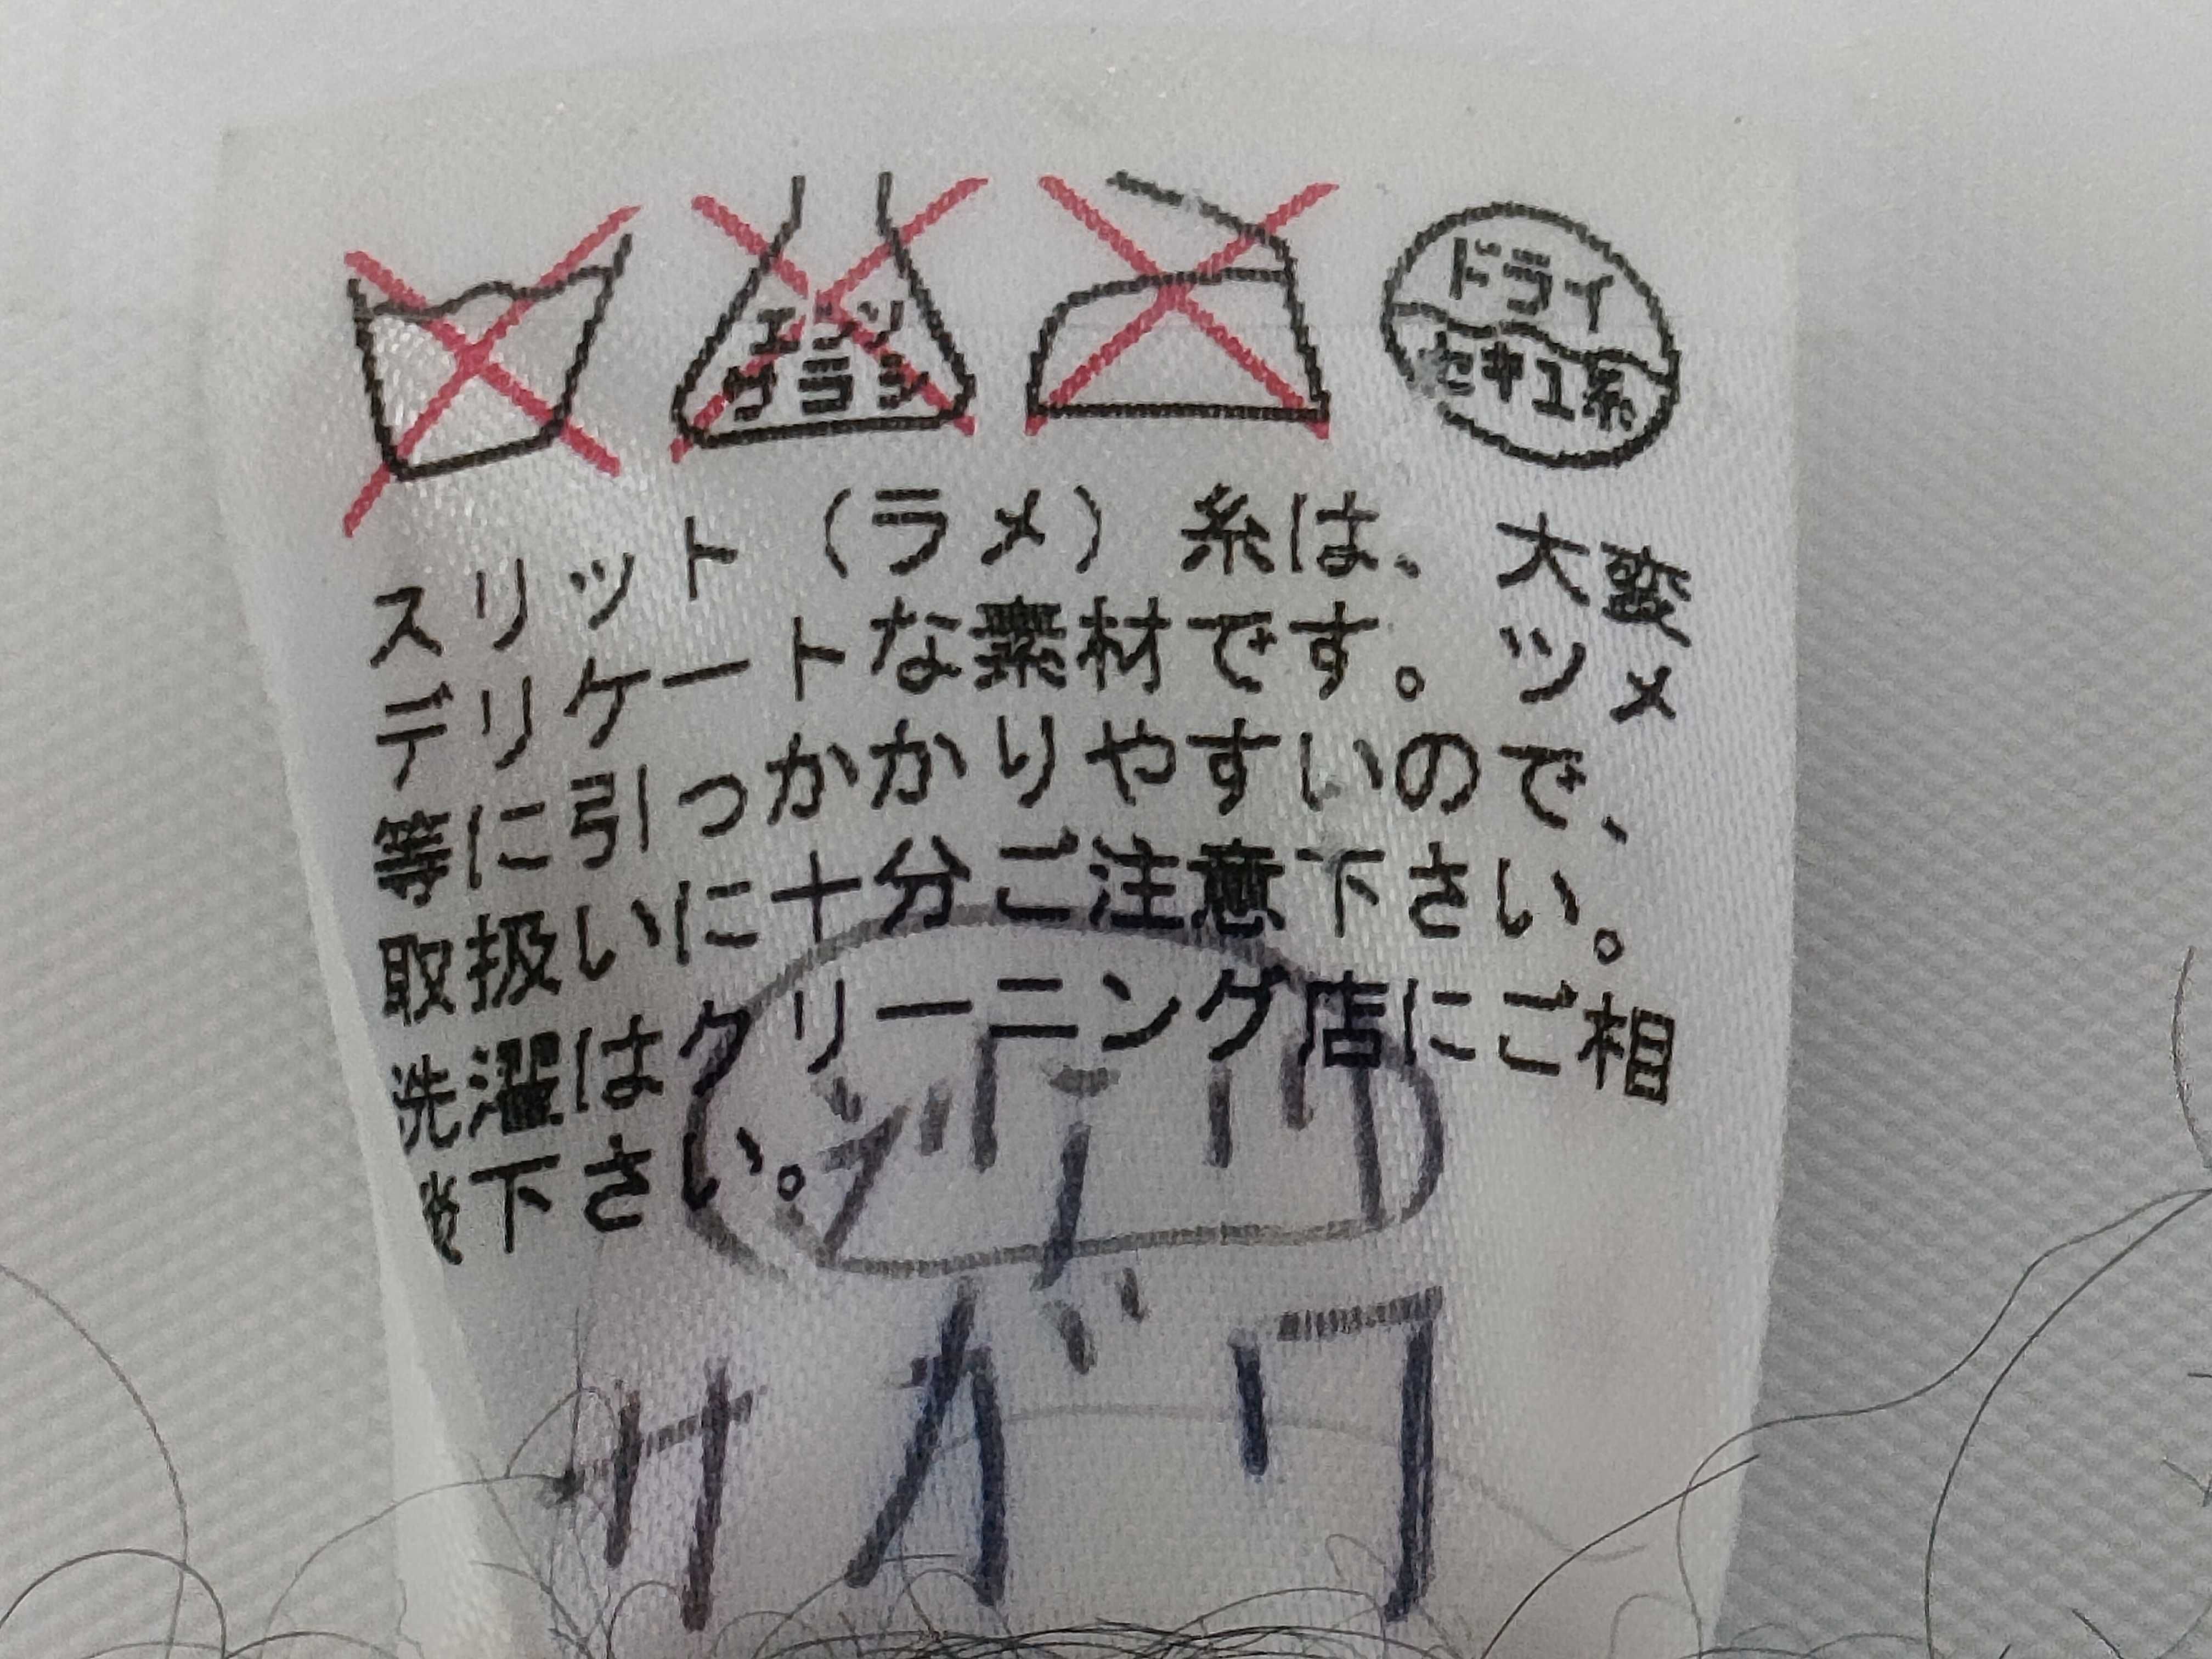 エンソ
サラシ
ドライ
セキユ系
スリット（ラメ）糸は、大変
デリケートな素材です。ツメ
等に引っかかりやすいので、
取扱いに十分ご注意下さい。
洗濯はクリーニング店にご相
談下さい。